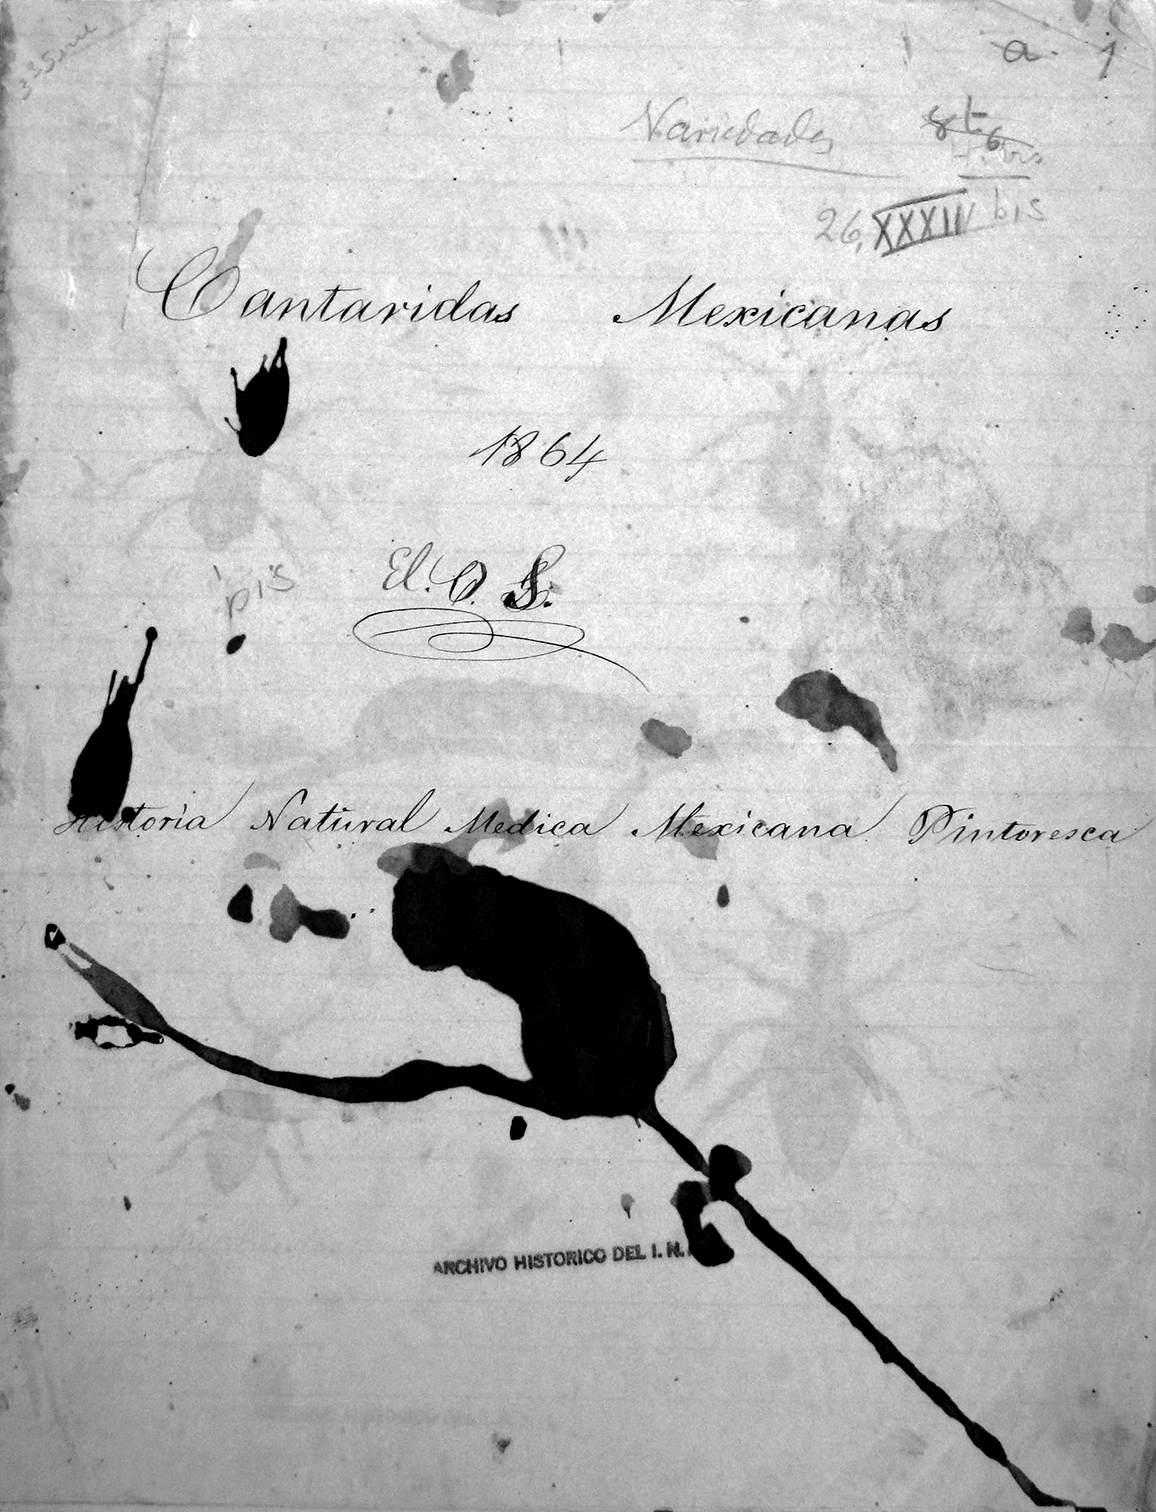 a. 1
Variedades
26, XXXIV bis
Cantaridas Mexicanas
1864
El. O. S.
bis
Historia Natural Medica Mexicana Pintoresca
ARCHIVO HISTORICO DEL I. N.